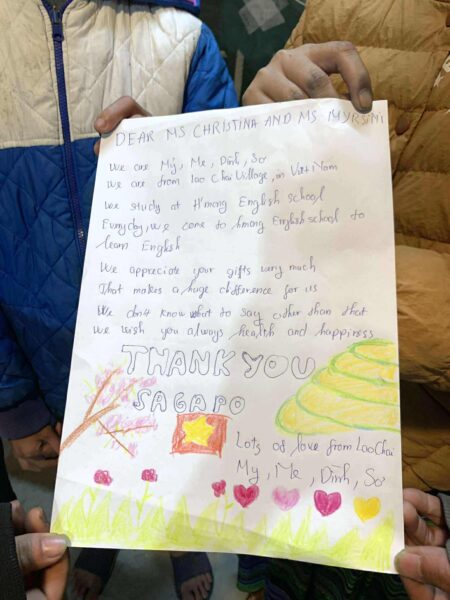 DEAR MS CHRISTINA AND MS MYRSINI
We are Mỷ, Me, Dinh, Sơ
We are from Lao Chai Village, in Viet Nam
We study at H'mong English school
Every day, we come to hmong English school to
learn English
We appreciate your gifts very much
That makes a huge difference for us
We don't know what to say other than that
We wish you always health and happiness
THANK YOU
SAGAPO
Lots of love from Lao Chai
My, Me, Dinh, Sơ